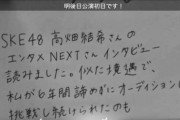 明後日公演初日です!
SKE48 高畑結希さんの
エンタメNEXTさんインタビュー
読みました。似た境遇で、
私が6年間諦めずにオーディションに
挑戦し続けられたのも